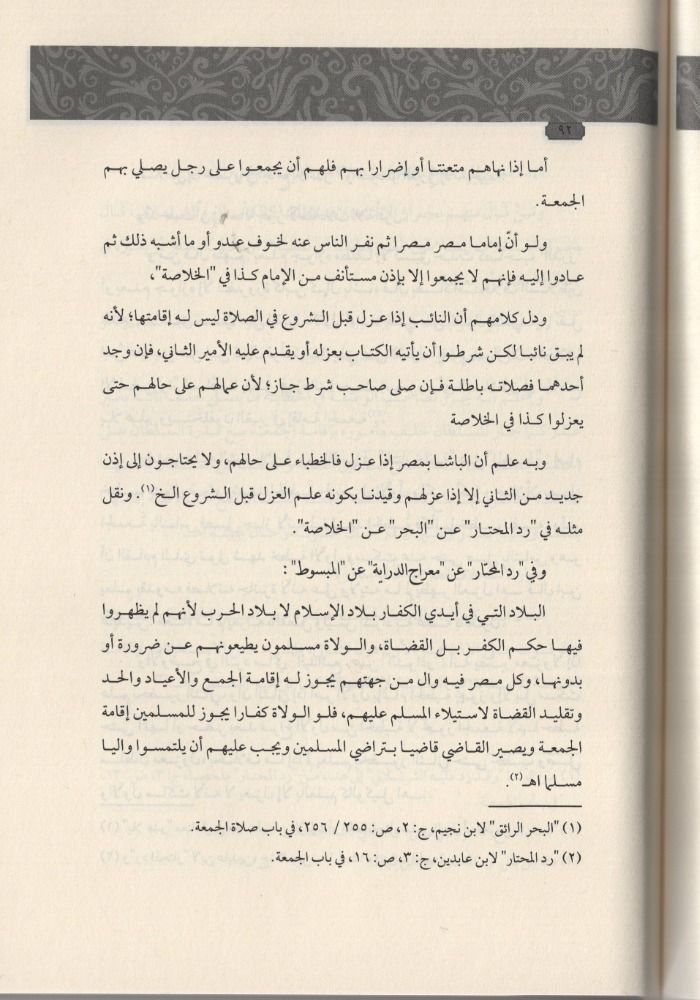 ٩٢
أما إذا نهاهم متعنتا أو إضرارا بهم فلهم أن يجمعوا على رجل يصلي بهم
الجمعة.
ولو أنّ إماما مصر مصرا ثم نفر الناس عنه لخوف عدو أو ما أشبه ذلك ثم
عادوا إليه فإنهم لا يجمعوا إلا بإذن مستأنف من الإمام كذا في "الخلاصة"،
ودل كلامهم أن النائب إذا عزل قبل الشروع في الصلاة ليس له إقامتها؛ لأنه
لم يبق نائبا لكن شرطوا أن يأتيه الكتاب بعزله أو يقدم عليه الأمير الثاني، فإن وجد
أحدهما فصلاته باطلة فإن صلى صاحب شرط جاز؛ لأن عمالهم على حالهم حتى
يعزلوا كذا في الخلاصة
وبه علم أن الباشا بمصر إذا عزل فالخطباء على حالهم، ولا يحتاجون إلى إذن
جديد من الثاني إلا إذا عزلهم وقيدنا بكونه علم العزل قبل الشروع الخ(١). ونقل
مثله في "رد المحتار" عن "البحر" عن "الخلاصة".
وفي "رد المحتار" عن "معراج الدراية" عن "المبسوط" :
البلاد التي في أيدي الكفار بلاد الإسلام لا بلاد الحرب لأنهم لم يظهروا
فيها حكم الكفر بل القضاة، والولاة مسلمون يطيعونهم عن ضرورة أو
بدونها، وكل مصر فيه وال من جهتهم يجوز له إقامة الجمع والأعياد والحد
وتقليد القضاة لاستيلاء المسلم عليهم، فلو الولاة كفارا يجوز للمسلمين إقامة
الجمعة ويصير القاضي قاضيا بتراضي المسلمين ويجب عليهم أن يلتمسوا واليا
مسلما اهـ(٢).
(١) "البحر الرائق" لابن نجيم، ج: ٢، ص: ٢٥٥ / ٢٥٦، في باب صلاة الجمعة.
(٢) "رد المحتار" لابن عابدين، ج: ٣، ص: ١٦، في باب الجمعة.